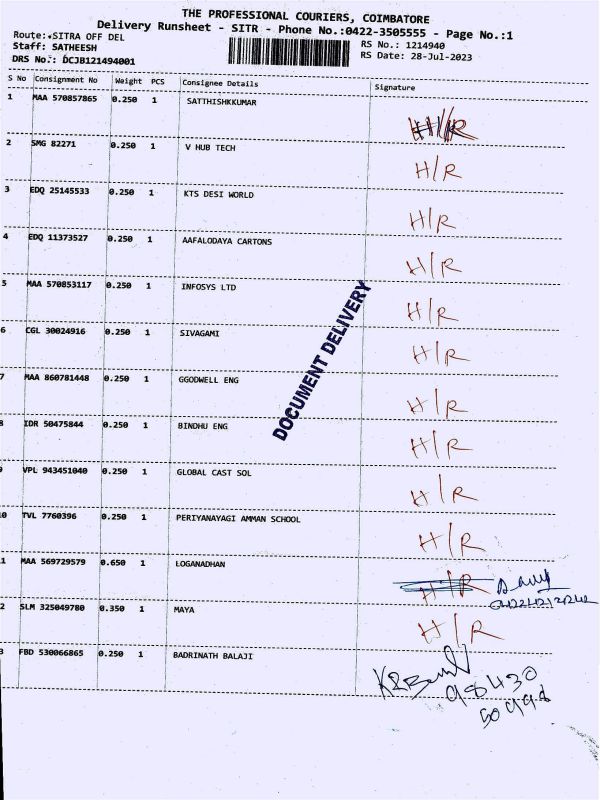 THE PROFESSIONAL COURIERS, COIMBATORE
Delivery Runsheet - SITR - Phone No.:0422-3505555 - Page No.:1
Route:*SITRA OFF DEL
RS No.: 1214940
Staff: SATHEESH
RS Date: 28-Jul-2023
DRS No.: DCJB121494001
S No Consignment No Weight PCS Consignee Details Signature
1 MAA 570857865 0.250 1 SATTHISHKKUMAR H/R
2 SMG 82271 0.250 1 V HUB TECH H/R
3 EDQ 25145533 0.250 1 KTS DESI WORLD H/R
4 EDQ 11373527 0.250 1 AAFALODAYA CARTONS H/R
5 MAA 570853117 0.250 1 INFOSYS LTD H/R
6 CGL 30024916 0.250 1 SIVAGAMI H/R
7 MAA 860781448 0.250 1 GGODWELL ENG H/R
8 IDR 50475844 0.250 1 BINDHU ENG H/R
9 VPL 943451040 0.250 1 GLOBAL CAST SOL H/R
0 TVL 7760396 0.250 1 PERIYANAYAGI AMMAN SCHOOL H/R
1 MAA 569729579 0.650 1 LOGANADHAN H/R
2 SLM 325049780 0.350 1 MAYA H/R
3 FBD 530066865 0.250 1 BADRINATH BALAJI
98430
50998
DOCUMENT DELIVERY